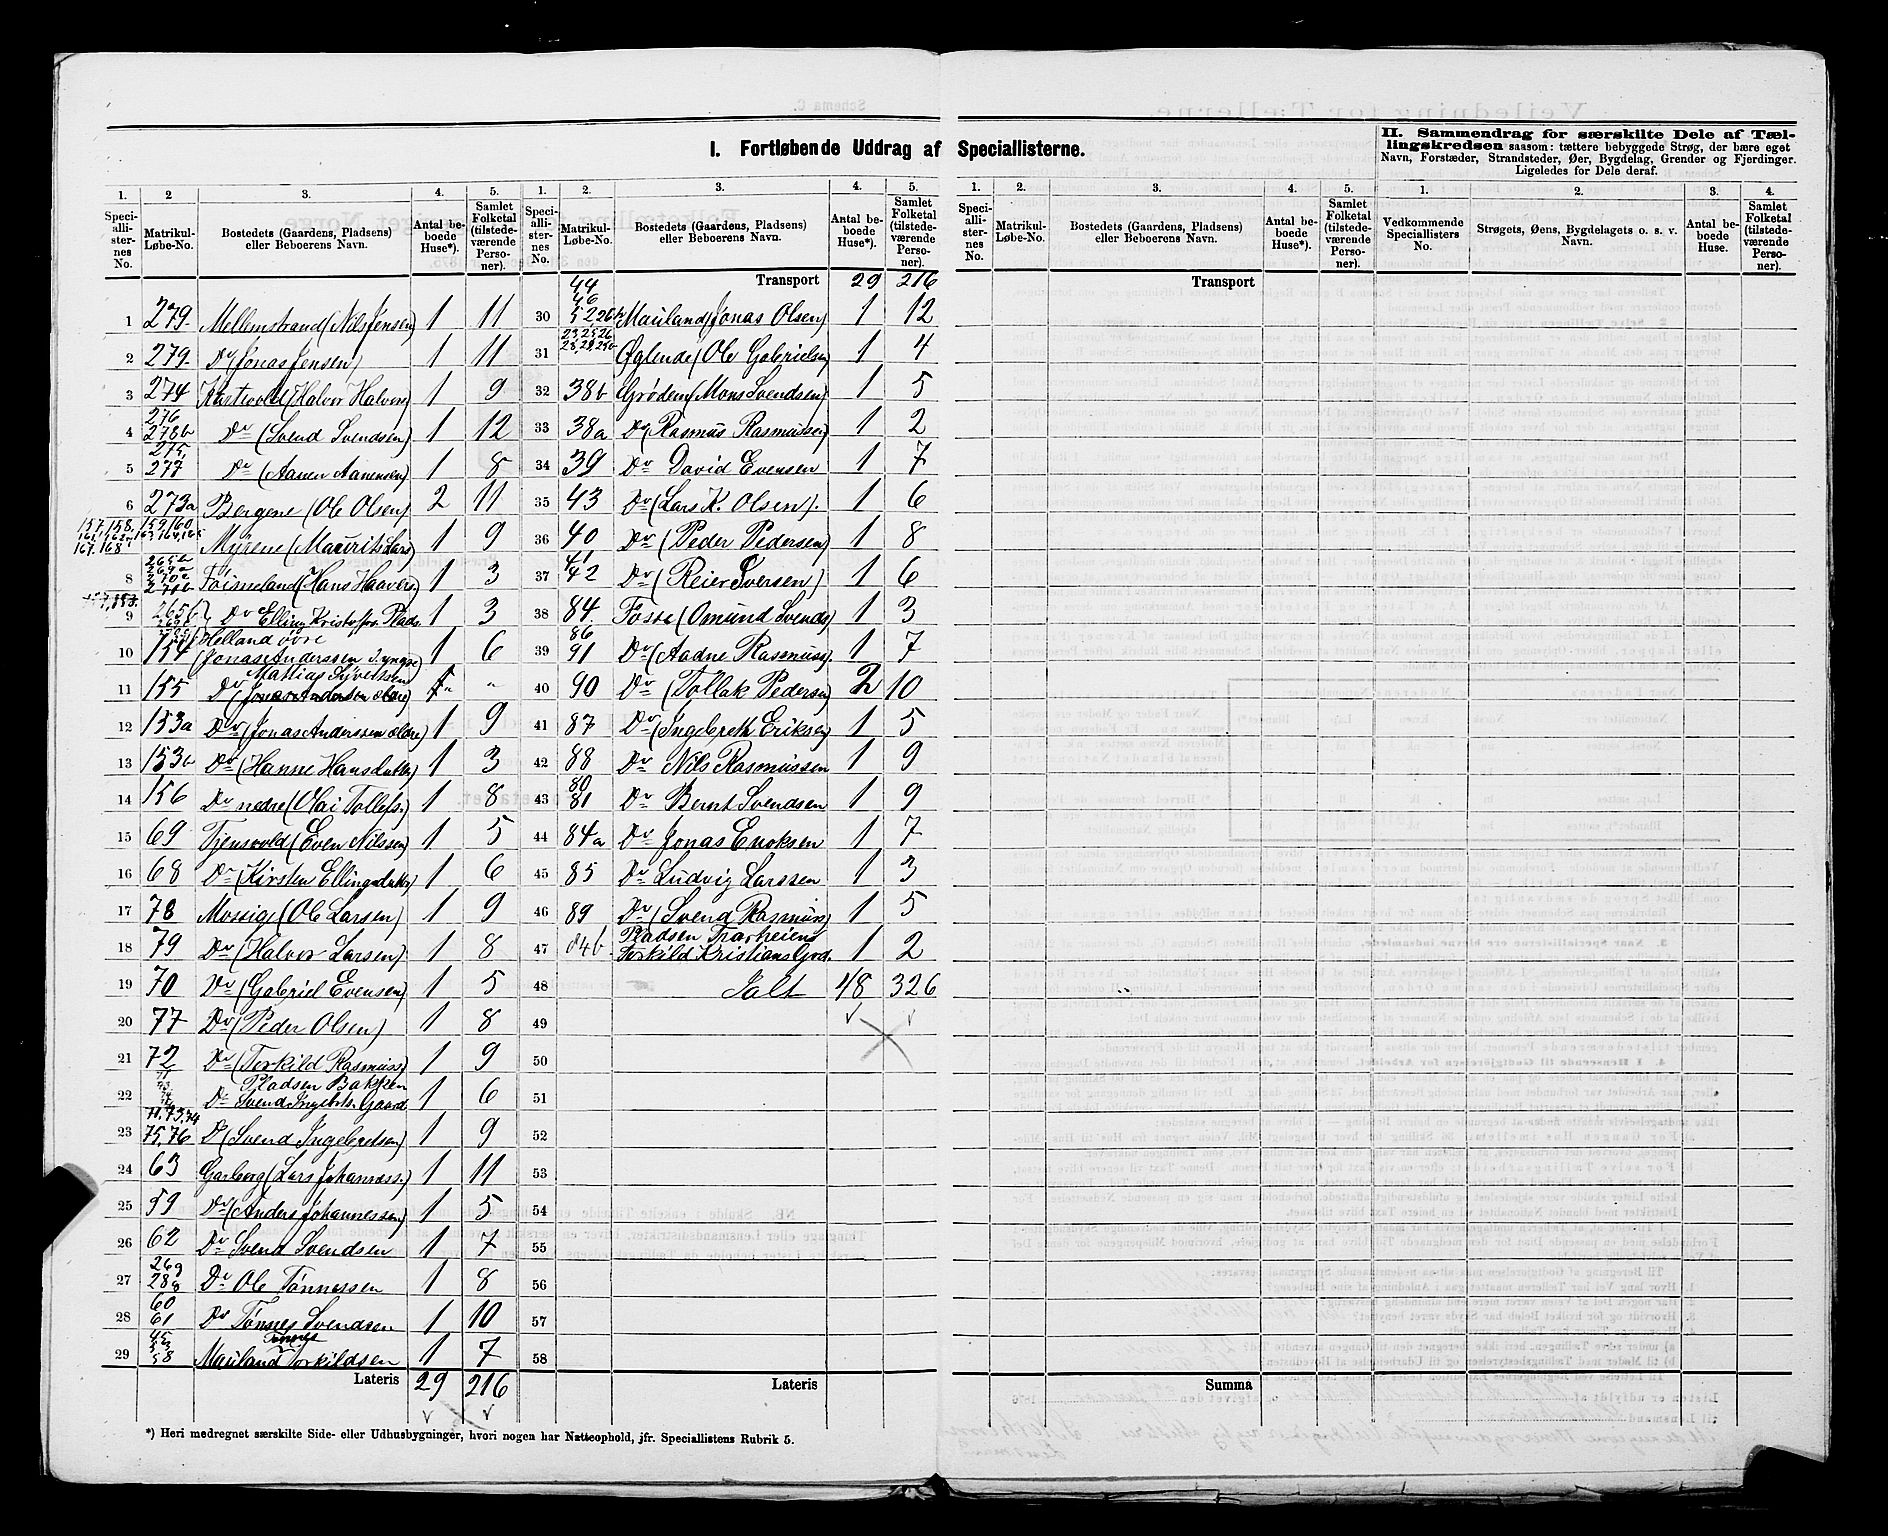 I. Fortløbende Uddrag af Speciallisterne.
II. Sammendrag for særskilte Dele af Tællingskredsen saasom: tættere bebyggede Strøg, der bære eget Navn, Forstæder, Strandsteder, Øer, Bygdelag, Grender og Fjerdinger. Ligeledes for Dele deraf.
1. 2 3. 4. 5. 1. 2. 3. 4. 5. 1. 2. 3. 4. 5. 1. 2. 3. 4.
Speciallisternes No. Matrikul-Løbe-No. Bostedets (Gaardens, Pladsens) eller Beboerens Navn. Antal beboede Huse*). Samlet Folketal (tilstedeværende Personer).
Speciallisternes No. Matrikul-Løbe-No. Bostedets (Gaardens, Pladsens) eller Beboerens Navn. Antal beboede Huse*). Samlet Folketal (tilstedeværende Personer).
Speciallisternes No. Matrikul-Løbe-No. Bostedets (Gaardens, Pladsens) eller Beboerens Navn. Antal beboede Huse*). Samlet Folketal (tilstedeværende Personer).
Vedkommende Speciallisters No. Strøgets, Øens, Bygdelagets o. s. v. Navn. Antal beboede Huse. Samlet Folketal (tilstedeværende Personer).
1 279. Mellemstrand (Nils Jensen) 1 11
2 279. Do (Jonas Jensen) 1 11
3 274 (Halvor Halvors) 1 9
4 276 278b Do (Svend Svendsen) 1 12
5 275, 277 Do (Aanen Aanensen) 1 8
6 273a Bergene (Ole Olsen) 2 11
157, 158, 159, 160
167, 168 Myrene (Maurits Lars) 1 9
8 265a 269a 270a 271b Foismeland (Hans Haavors.) 1 3
9 265b Do Elling Kristoffers. Plads. 1 3
10 154 Helland øvre (Jonas Anderssen d. yngre) 1 6
11 155 Do Mathias Syvertssen (Jonas Andersen ældre) " "
12 153a Do (Jonas Anderssen ældre) 1 9
13 153b Do (Hanne Hansdatter) 1 3
14 156 Do nedre (Olai Tollefs.) 1 8
15 69 Tjensvold (Even Nilssen) 1 5
16 68 Do (Kirsten Ellingsdatter) 1 6
17 78 Mossige (Ole Larsen) 1 9
18 79 Do (Halvor Larsen) 1 8
19 70 Do (Gabriel Evensen) 1 5
20 77 Do (Peder Olsen) 1 8
21 72 Do (Torkild Rasmuss) 1 9
22 Pladsen Bakken Do Svend Ingebrts. Gaard 1 6
23 71, 73, 74 75, 76 Do (Svend Ingebretsen) 1 9
24 63 Garborg (Lars Johanness.) 1 11
25 59 Do (Anders Johannessen) 1 5
26 62 Do Svend Svendsen 1 7
27 Do Ole Tønnessen 1 8
28 60 61 Do Tønnes Svendsen 1 10
29 58 Mauland Tønnes Torkildsen 1 7
Lateris 29 216
Transport 29 216
30 44 46 52 Mauland (Jonas Olsen) 1 12
31 Øglende (Ole Gabrielsen) 1 4
32 38b Grødem (Mons Svendsen) 1 5
33 38a Do (Rasmus Rasmussen) 1 2
34 39 Do David Evensen 1 7
35 43 Do (Lars K. Olsen). 1 6
36 40 Do (Peder Pedersen) 1 8
37 41 42 Do (Reier Iversen) 1 6
38 84. Fosse (Omund Svends) 1 3
39 86 91 Do (Aadne Rasmuss). 1 7
40 90 Do (Tollak Pedersen) 2 10
41 87 Do (Ingebreth Eriksen) 1 5
42 88 Do Nils Rasmussen 1 9
43 80 81 Do Bernt Svendsen 1 9
44 84a Do Jonas Enoksen 1 7
45 85 Do Ludvig Larssen 1 3
46 89 Do (Svend Rasmuss) 1 5
47 84b Pladsen Torkild Kristians Grd. 1 2
48 Ialt 48 326
49
50
51
52
53
54
55
56
57
58
Lateris
Transport
Summa
*) Heri medregnet særskilte Side- eller Udhusbygninger, hvori nogen har Natteophold, jfr. Speciallistens Rubrik 5.